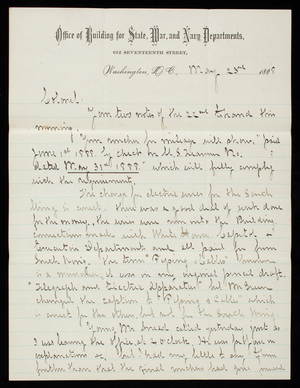 Office of Building for State, War, and Navy Departments,
632 SEVENTEENTH STREET,
Washington, D. C., May 23rd 1888
Colonel:
Your two notes of the 22nd to hand this
morning.
Your voucher for mileage will show, "paid
June 1st 1888 by check on U.S. Treasurer No.
dated May 31st 1888" which will fully comply
with the requirement.
The charge for electric wires for the South
Wing is correct. There was a good deal of work done
for this money. The wires were run into the Building
connections made with White House, Capitol &
Executive Departments and all paid for from
South Wing. The term "Repairing Cables"
is a misnomer, it was on my original pencil draft.
"Telegraph and Electric Apparatus" but Mr
changed the caption to "Repairing Cables" which
is correct for the others, but not for the South Wing.
Young Mr called yesterday just as
I was leaving the office, at 4 o'clock. He was full for an
explanation &c, but I had very little to say to him
further than that the final voucher had give much